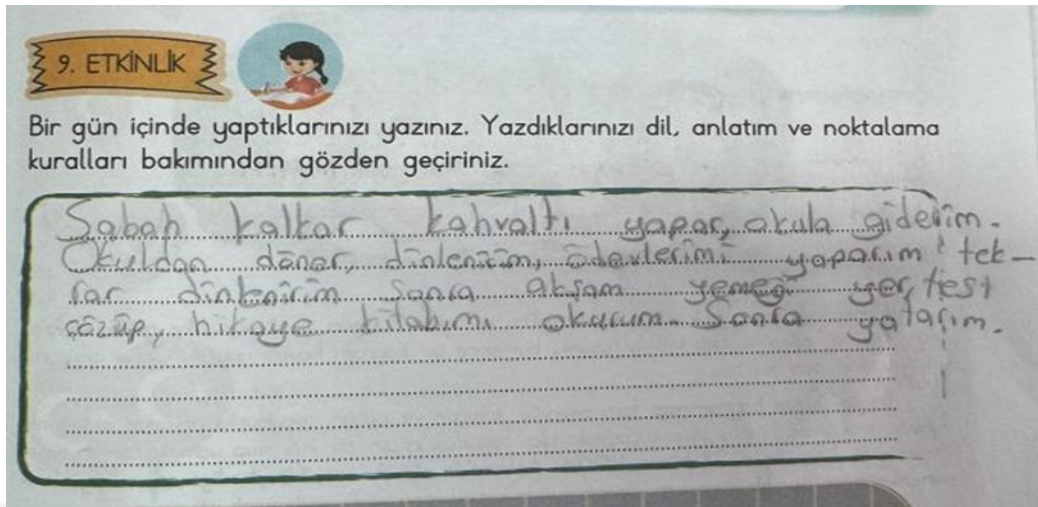 9. ETKİNLİK
Bir gün içinde yaptıklarınızı yazınız. Yazdıklarınızı dil, anlatım ve noktalama
kuralları bakımından gözden geçiriniz.
Sabah kalkar kahvaltı yapar, okula giderim.
Okuldan döner, dinlenirim, ödevlerimi yaparım tek-
rar dinlenirim sonra akşam yemeği yer, test
çözüp, hikaye kitabımı okurum. Sonra yatarım.